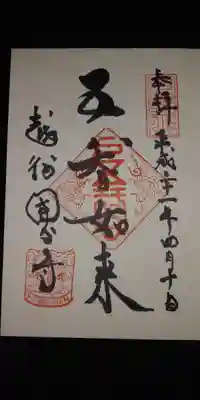 奉拝
平成二十一年四月十日
五智如来
越後國分寺